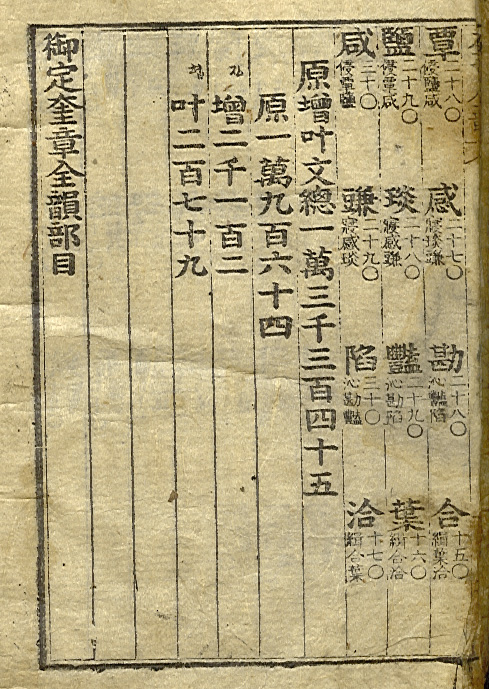 覃 二十八〇 侵鹽咸 感 二十七〇 寢琰豏 勘 二十八〇 沁豔陷 合 十五〇 緝葉洽
鹽 二十九〇 侵覃咸 琰 二十八〇 寢感豏 豔 二十九〇 沁勘陷 葉 十六〇 緝合洽
咸 三十〇 侵覃鹽 豏 二十九〇 寢感琰 陷 三十〇 沁勘豔 洽 十七〇 緝合葉
原增叶文總一萬三千三百四十五
原一萬九百六十四
增二千一百二
叶二百七十九
御定奎章全韻部目